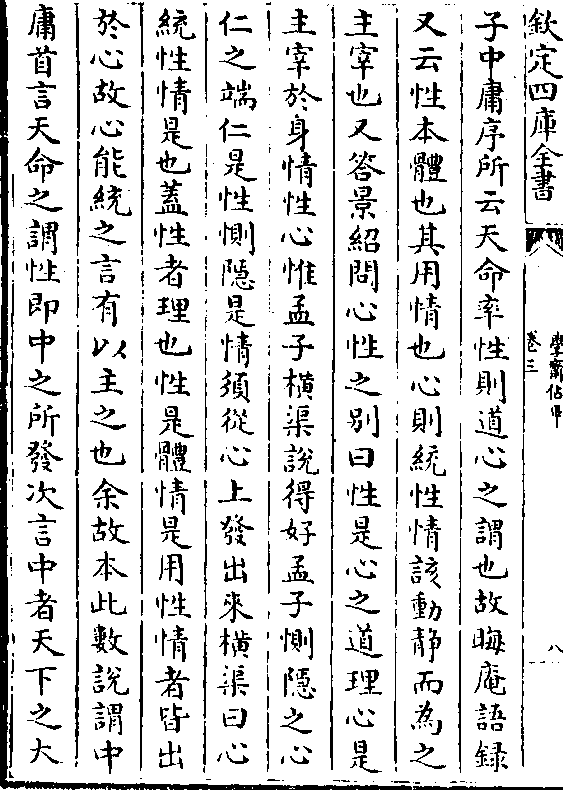 欽定四庫全書
學齋佔畢
卷三
八
子中庸序所云天命率性則道心之謂也故晦庵語録
又云性本體也其用情也心則統性情該動静而為之
主宰也又答景紹問心性之别曰性是心之道理心是
主宰於身情性心惟孟子横渠說得好孟子惻隱之心
仁之端仁是性惻隱是情須從心上發出來横渠曰心
統性情是也蓋性者理也性是體情是用性情者皆出
於心故心能統之言有以主之也余故本此數說謂中
庸首言天命之謂性即中之所發次言中者天下之大